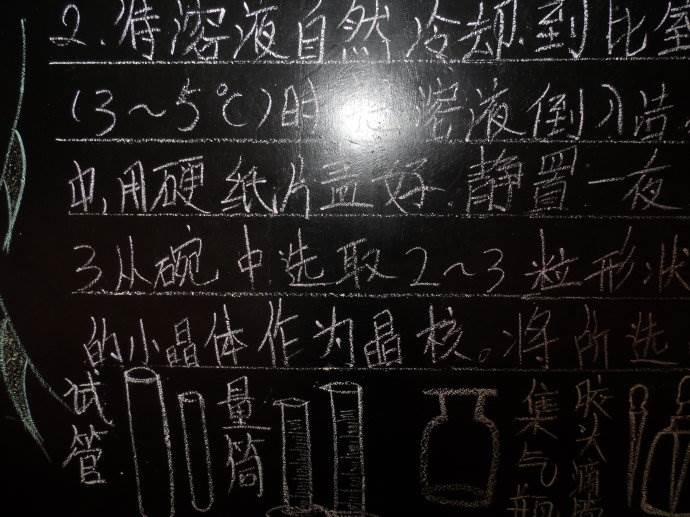 2.待溶液自然冷却到比室
(3~5℃)时 溶液倒入洁
中,用硬纸片盖好.静置一夜
3.从碗中选取2~3粒形状
的小晶体作为晶核。将所选
试管
量筒
集气瓶
胶头滴管